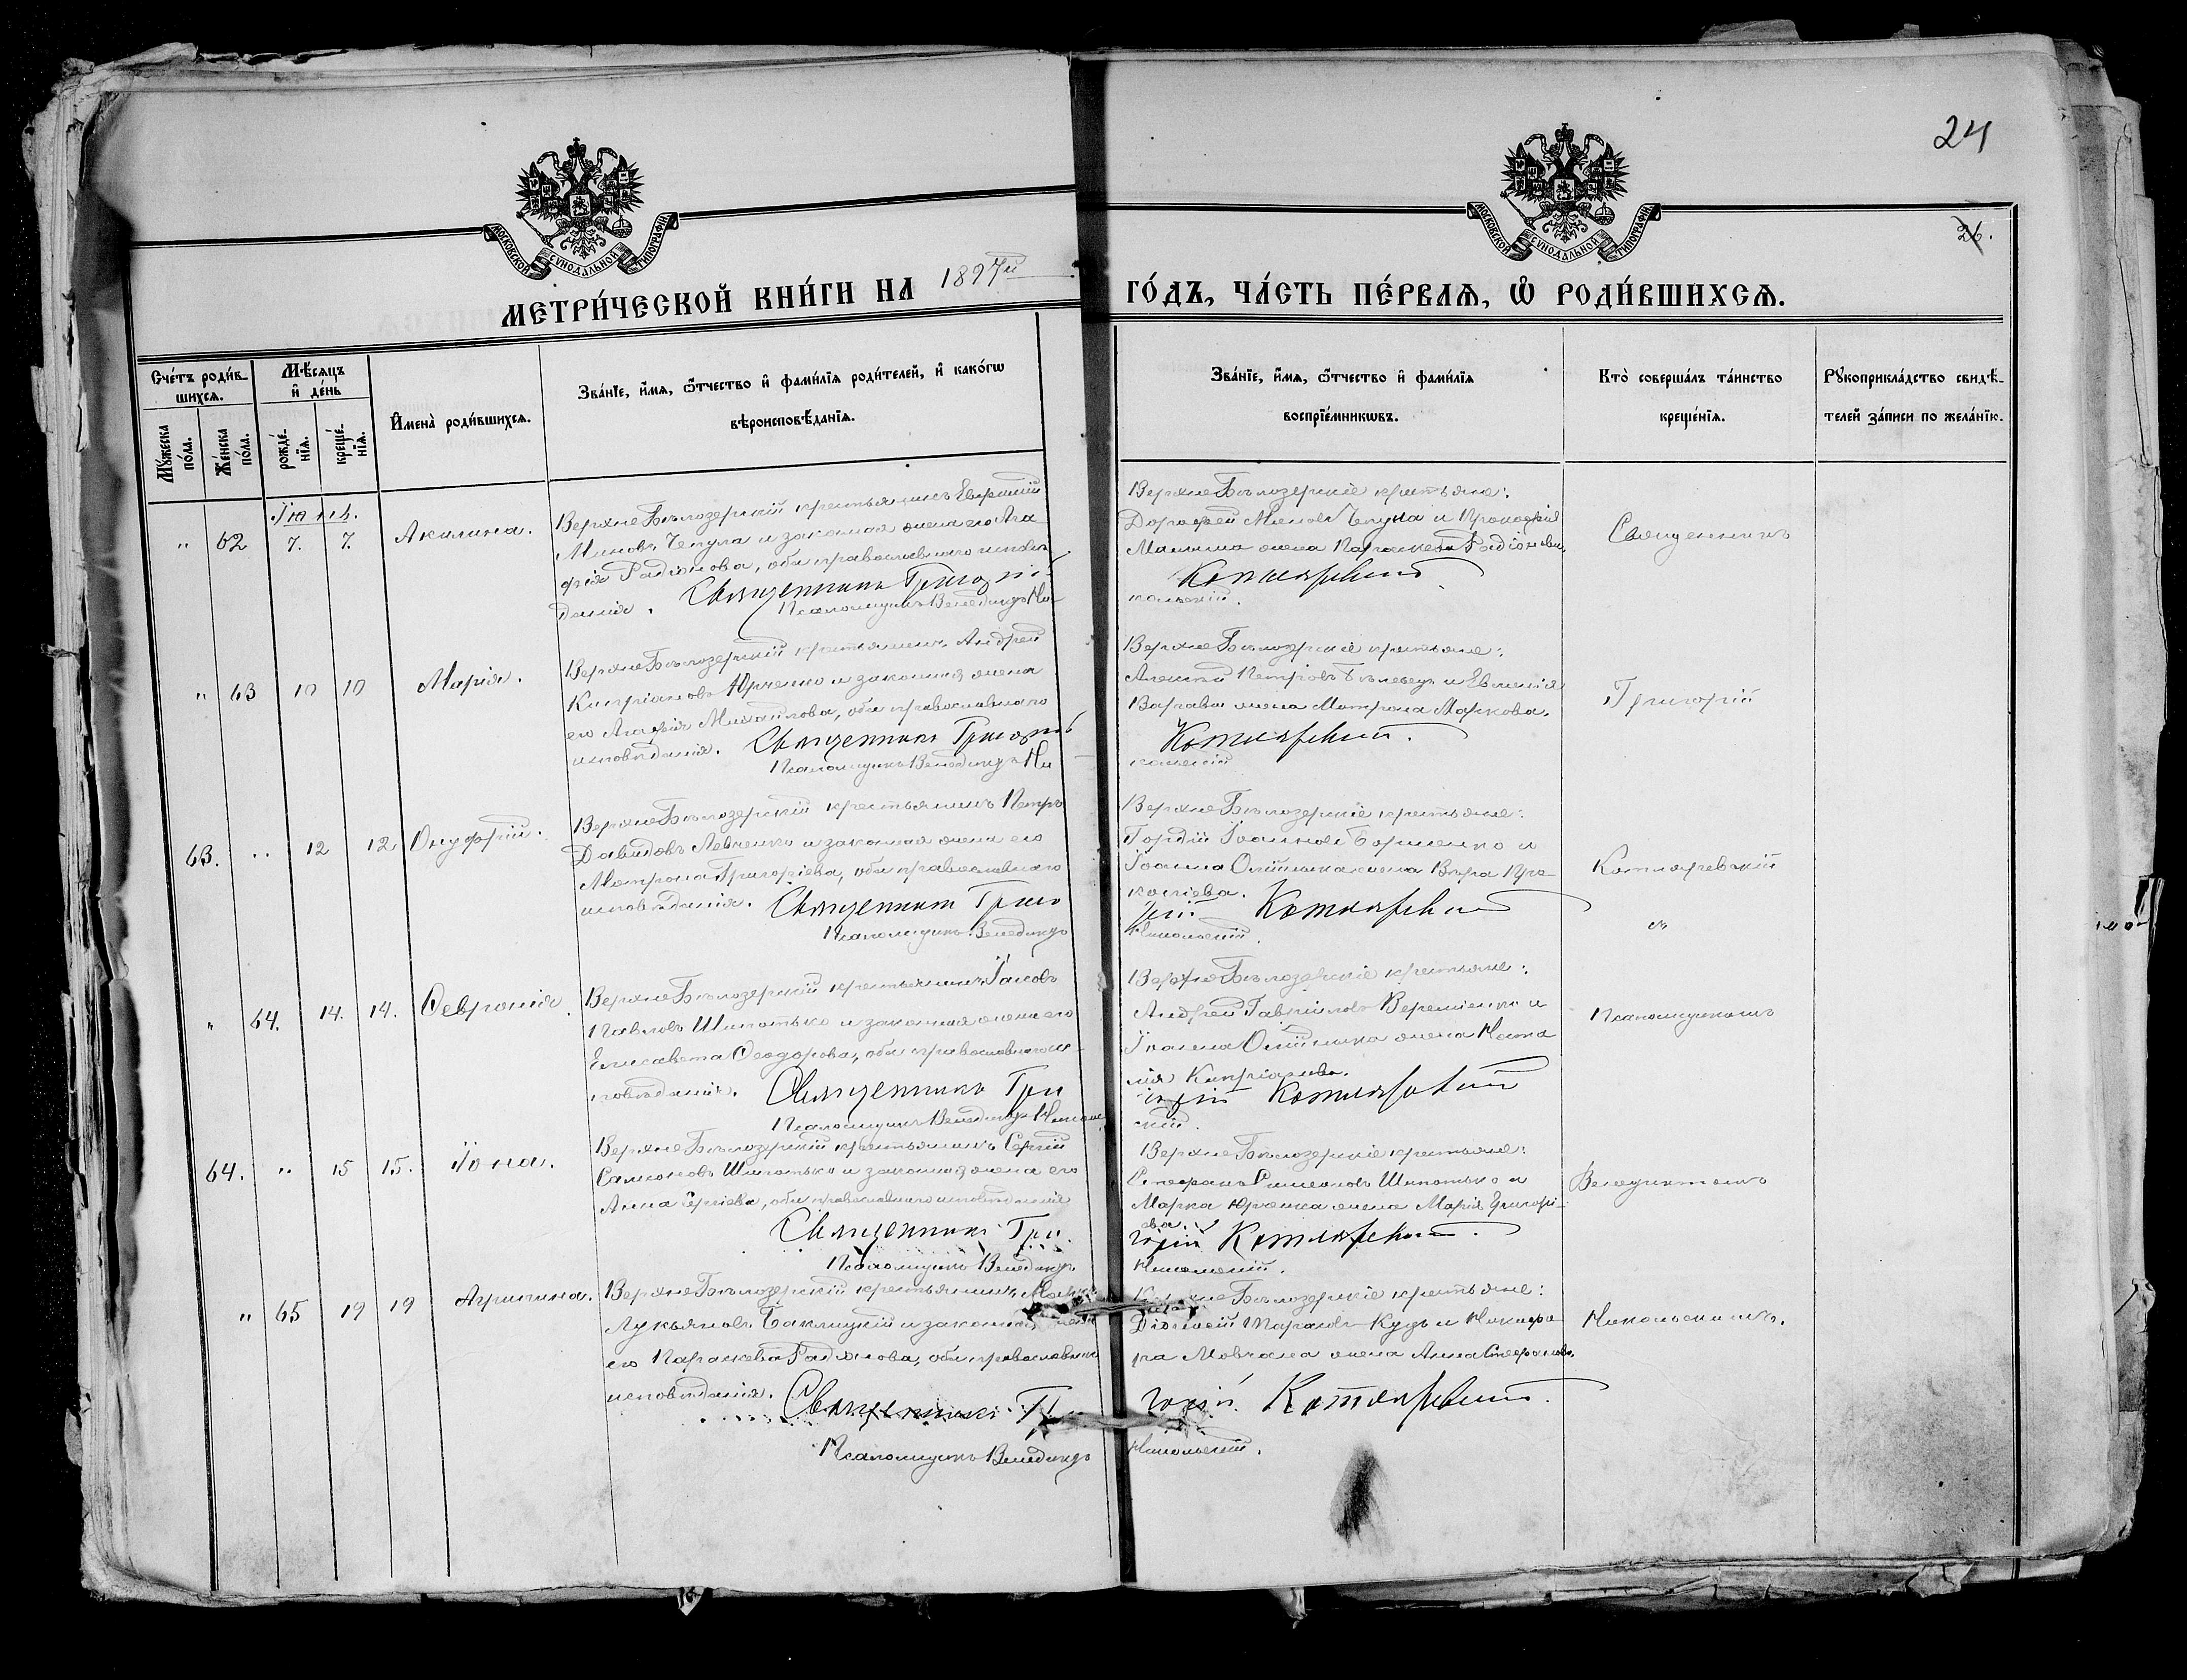 24
26.
МОСКОВСКОЙ СѴНОДАЛЬНОЙ ТИПОГРАФІИ
МОСКОВСКОЙ СѴНОДАЛЬНОЙ ТИПОГРАФІИ
МЕТРИ́ЧЕСКОЙ КНИ́ГИ НА 1897й ГО́ДЪ, ЧА́СТЬ ПЕ́РВАѦ, Ѡ҆ РОДИ́ВШИХСѦ.
Сче́тъ роди́в-
шихсѧ.
Мѣ́сѧцъ
и҆ де́нь
Мꙋ́жеска
по́ла.
Же́нска
по́ла.
рожде́-
нїѧ.
креще́-
нїѧ.
И҆мена̀ роди́вшихсѧ.
Зва́нїе, и҆́мѧ, ѻ҆́тчество и҆ фами́лїѧ роди́телей, и҆ како́гѡ
вѣроисповѣ́данїѧ.
Зва́нїе, и҆́мѧ, ѻ҆́тчество и҆ фами́лїѧ
воспрїе́мникѡвъ.
Кто̀ соверша́лъ та́инство
креще́нїѧ.
Рꙋкоприкла́дство свидѣ́-
телей за́писи по жела́нїю.
Іюнь.
" 62 7. 7. Акилина.
ВерхнеБѣлозерскій крестьянинъ Евфимій
Миновъ Чепула и законная жена его Ага-
фія Радіонова, оба православнаго исповѣ-
данія. Священникъ Григорій
Псаломщикъ Венедиктъ Ни-
ВерхнеБѣлозерскіе крестьяне:
Дорофей Миновъ Чепула и Прокофія
жена Параскева Радіонова.
Котляревскій
кольскій.
Священникъ
" 63 10 10 Марія.
ВерхнеБѣлозерскій крестьянинъ Андрей
Кипріановъ Юрченко и законная жена
его Агафія Михайлова, оба православнаго
исповѣданія. Священникъ Григорій
Псаломщикъ Венедиктъ Ни
ВерхнеБѣлозерскіе крестьяне:
Алексѣй Петровъ и Евменія
жена Матрона Маркова.
Котляревскій.
кольскій
Григорій
63. " 12 12. Онуфрій.
ВерхнеБѣлозерскій крестьянинъ Петръ
Давидовъ Левченко и законная жена его
Матрона Григоріева, оба православнаго
исповѣданія. Священникъ Григо
Псаломщикъ Венедиктъ
ВерхнеБѣлозерскіе крестьяне:
Гордій Іоанновъ и
Іоанна жена Вѣра Про-
копіева.
рій Котляревскій
Никольскій.
Котляревскій
съ
" 64. 14. 14. Февронія.
ВерхнеБѣлозерскій крестьянинъ Іаковъ
Павловъ Шипотько и законная жена его
Елисавета Ѳеодорова, оба православнаго ис-
повѣданія. Священникъ Гри
Псаломщикъ Венедиктъ Николь
ВерхнеБѣлозерскіе крестьяне:
Андрей Гавріиловъ Веремѣенко и
Іоанна жена Ната
лія Кипріанова.
горій Котляревскій
скій.
Псаломщикомъ
64. " 15 15. Іона.
ВерхнеБѣлозерскій крестьянинъ Сергій
Самсоновъ Шипотько и законная жена его
Анна Сергіева, оба православнаго исповѣданія
Священникъ Гри.
Псаломщикъ Венедиктъ
ВерхнеБѣлозерскіе крестьяне:
Стефанъ Симеоновъ Шипотько и
Марка Юрченка жена Марія Григорі-
ева.
горій Котляревскій.
Никольскій.
Венедиктомъ
" 65 19 19 Агрипина.
ВерхнеБѣлозерскій крестьянинъ
Лукьяновъ Баклицкій и законная жена
его Параскева Радіонова, оба православнаго
исповѣданія. Священникъ Гри
Псаломщикъ Венедиктъ
ВерхнеБѣлозерскіе крестьяне:
Діонисій Тарасовъ Куцъ и Никифо
ра Мовчана жена Анна Стефанова.
горій. Котляревскій.
Никольскій.
Никольскимъ.